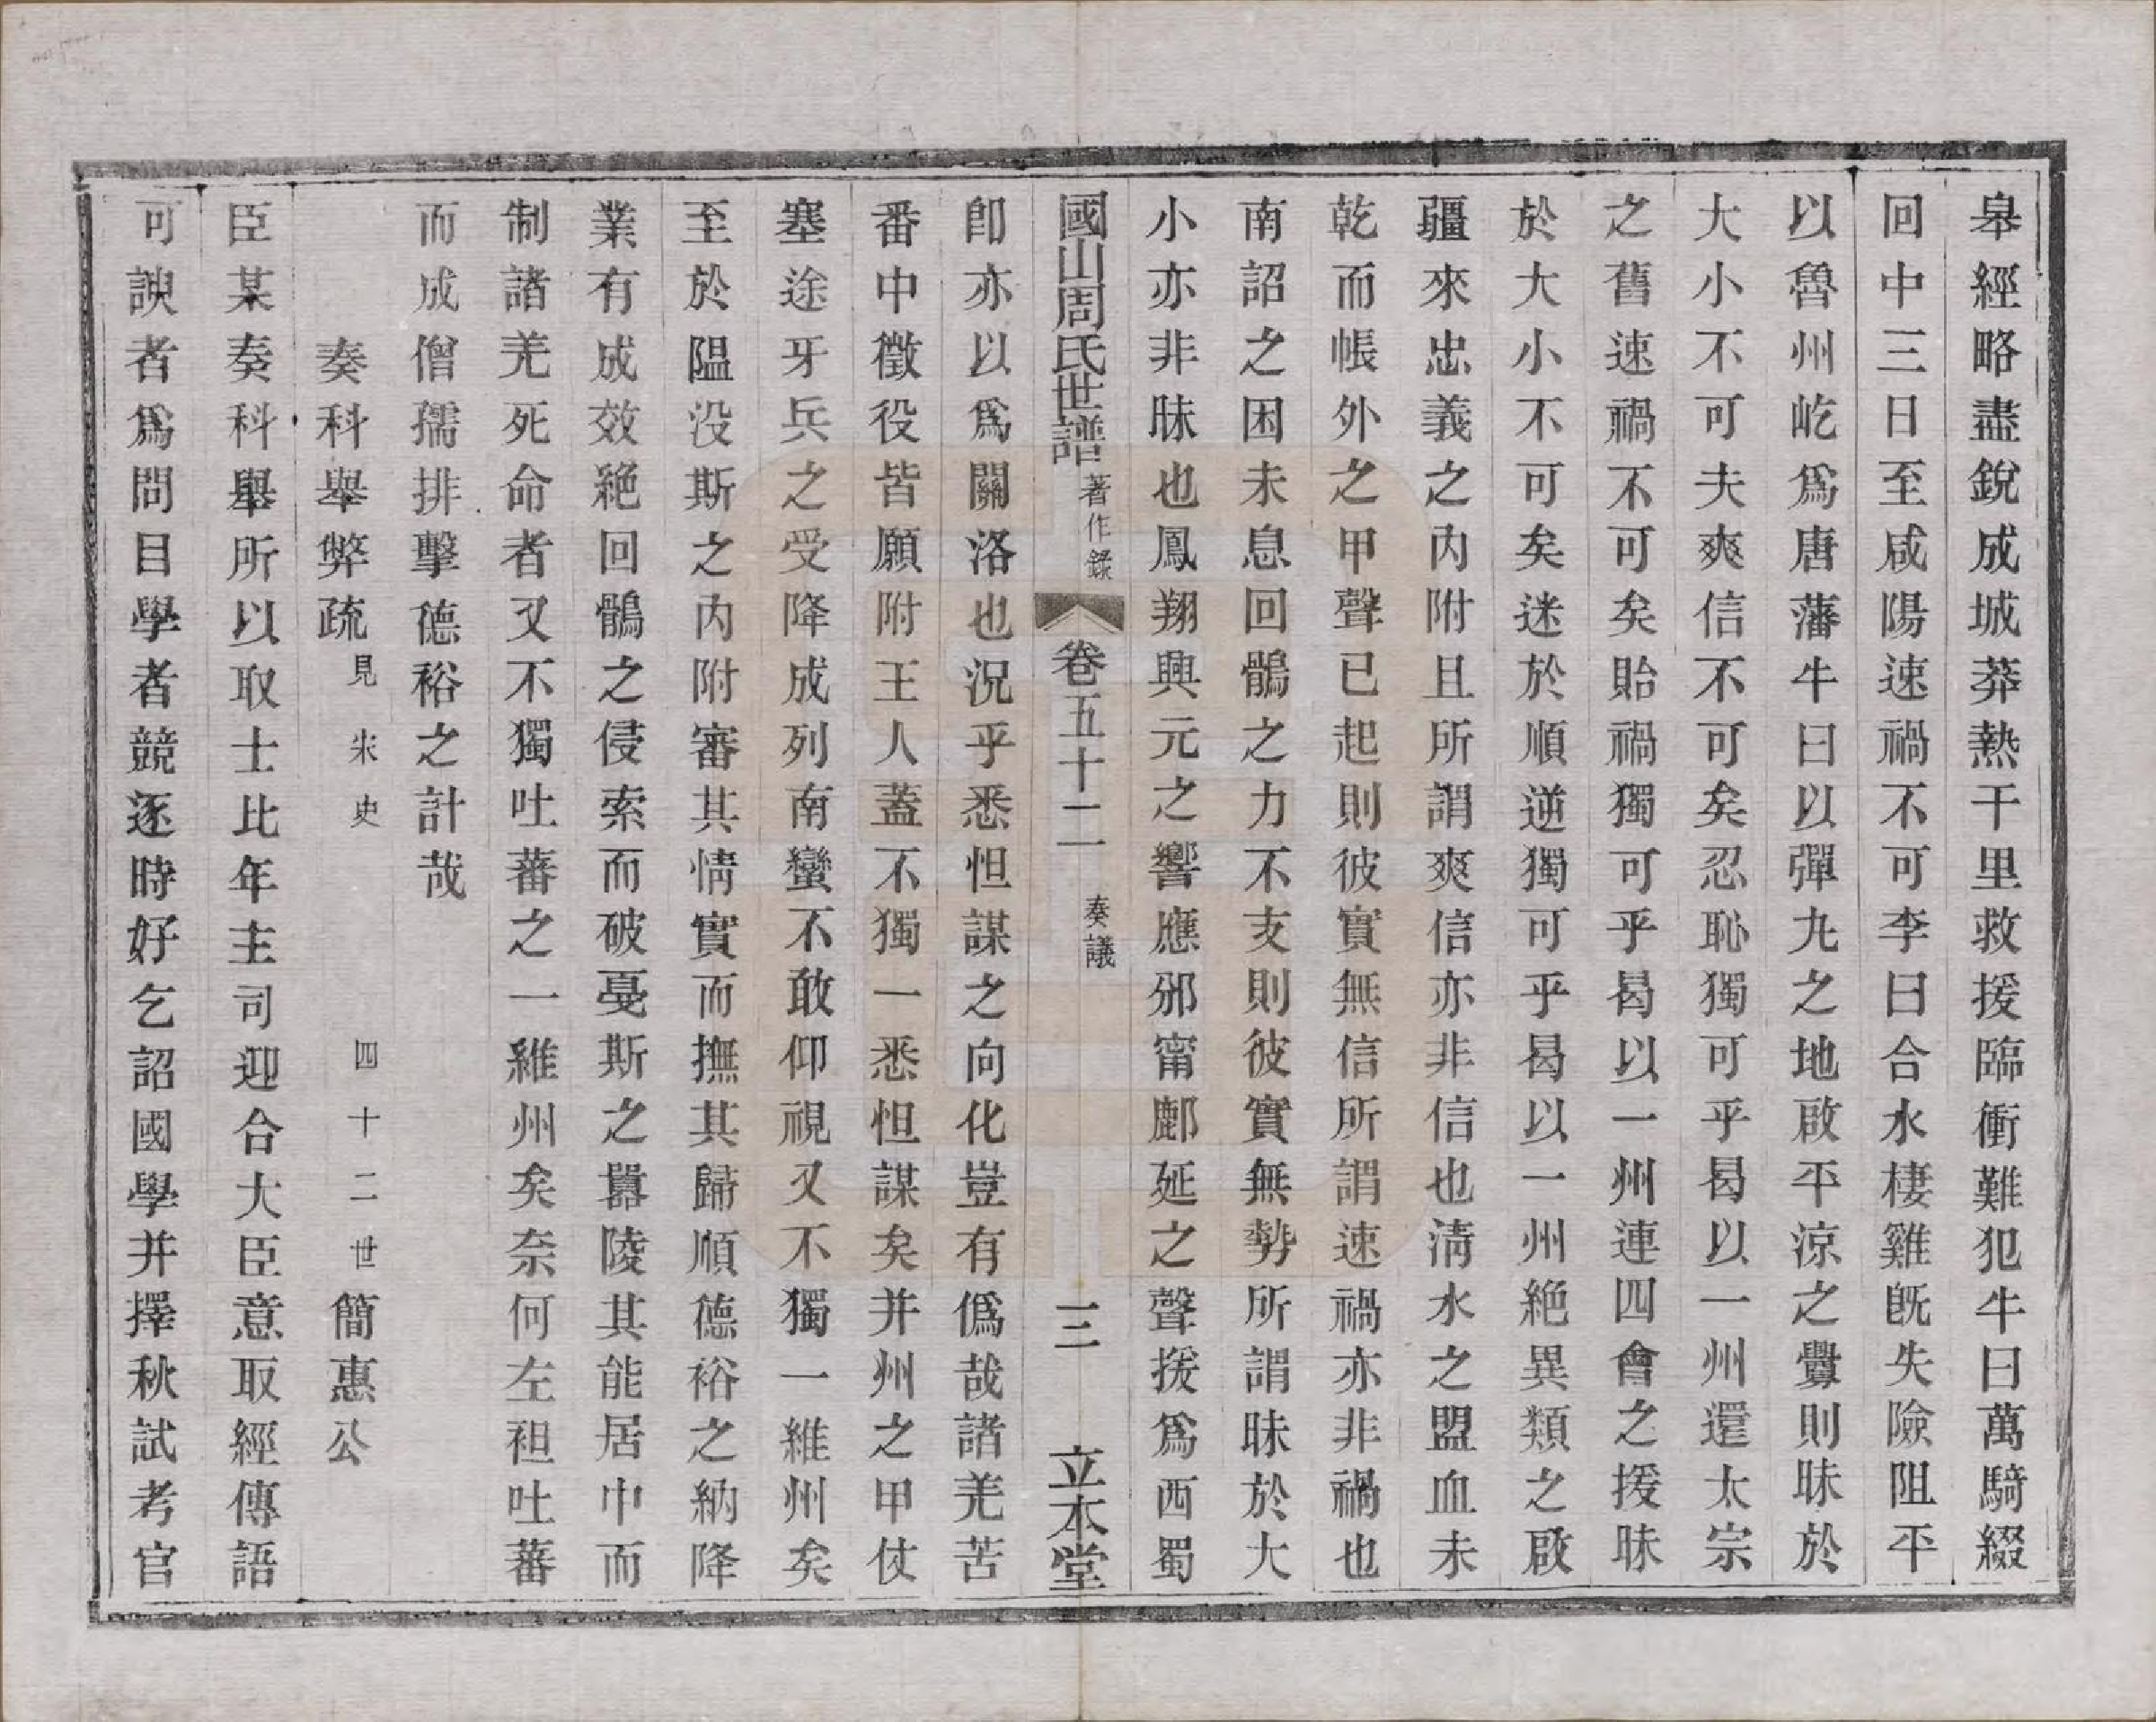 皋經略盡銳成城莽熱干里救援臨衝難犯牛曰萬騎綴
回中三日至咸陽速禍不可李曰合水棲雞旣失險阻平
以魯州屹爲唐藩牛曰以彈九之地啟平涼之釁則昧於
大小不可夫爽信不可矣忍恥獨可乎曷以一州還太宗
之舊速禍不可矣貽禍獨可乎曷以一州連四會之援昧
於大小不可矣迷於順逆獨可乎曷以一州絕異類之啟
疆來忠義之內附且所謂爽信亦非信也清水之盟血未
乾而帳外之甲聲已起則彼實無信所謂速禍亦非禍也
南詔之困未息回鶻之力不支則彼實無勢所謂昧於大
小亦非昧也鳳翔興元之響應邠甯鄜延之聲援爲西蜀
國山周氏世譜 著作錄 卷五十二 奏議 三 立本堂
卽亦以爲關洛也況乎悉怛謀之向化豈有僞哉諸羌苦
番中徵役皆願附王人蓋不獨一悉怛謀矣并州之甲仗
塞途牙兵之受降成列南蠻不敢仰視又不獨一維州矣
至於隘沒斯之內附審其情實而撫其歸順德裕之納降
業有成效絕回鶻之侵索而破戞斯之嚣陵其能居中而
制諸羌死命者又不獨吐蕃之一維州矣奈何左袒吐蕃
而成僧孺排擊德裕之計哉
奏科舉弊疏 見宋史 四十二世簡惠公
臣某奏科舉所以取士比年主司迎合大臣意取經傳語
可諛者爲問目學者競逐時好乞詔國學并擇秋試考官